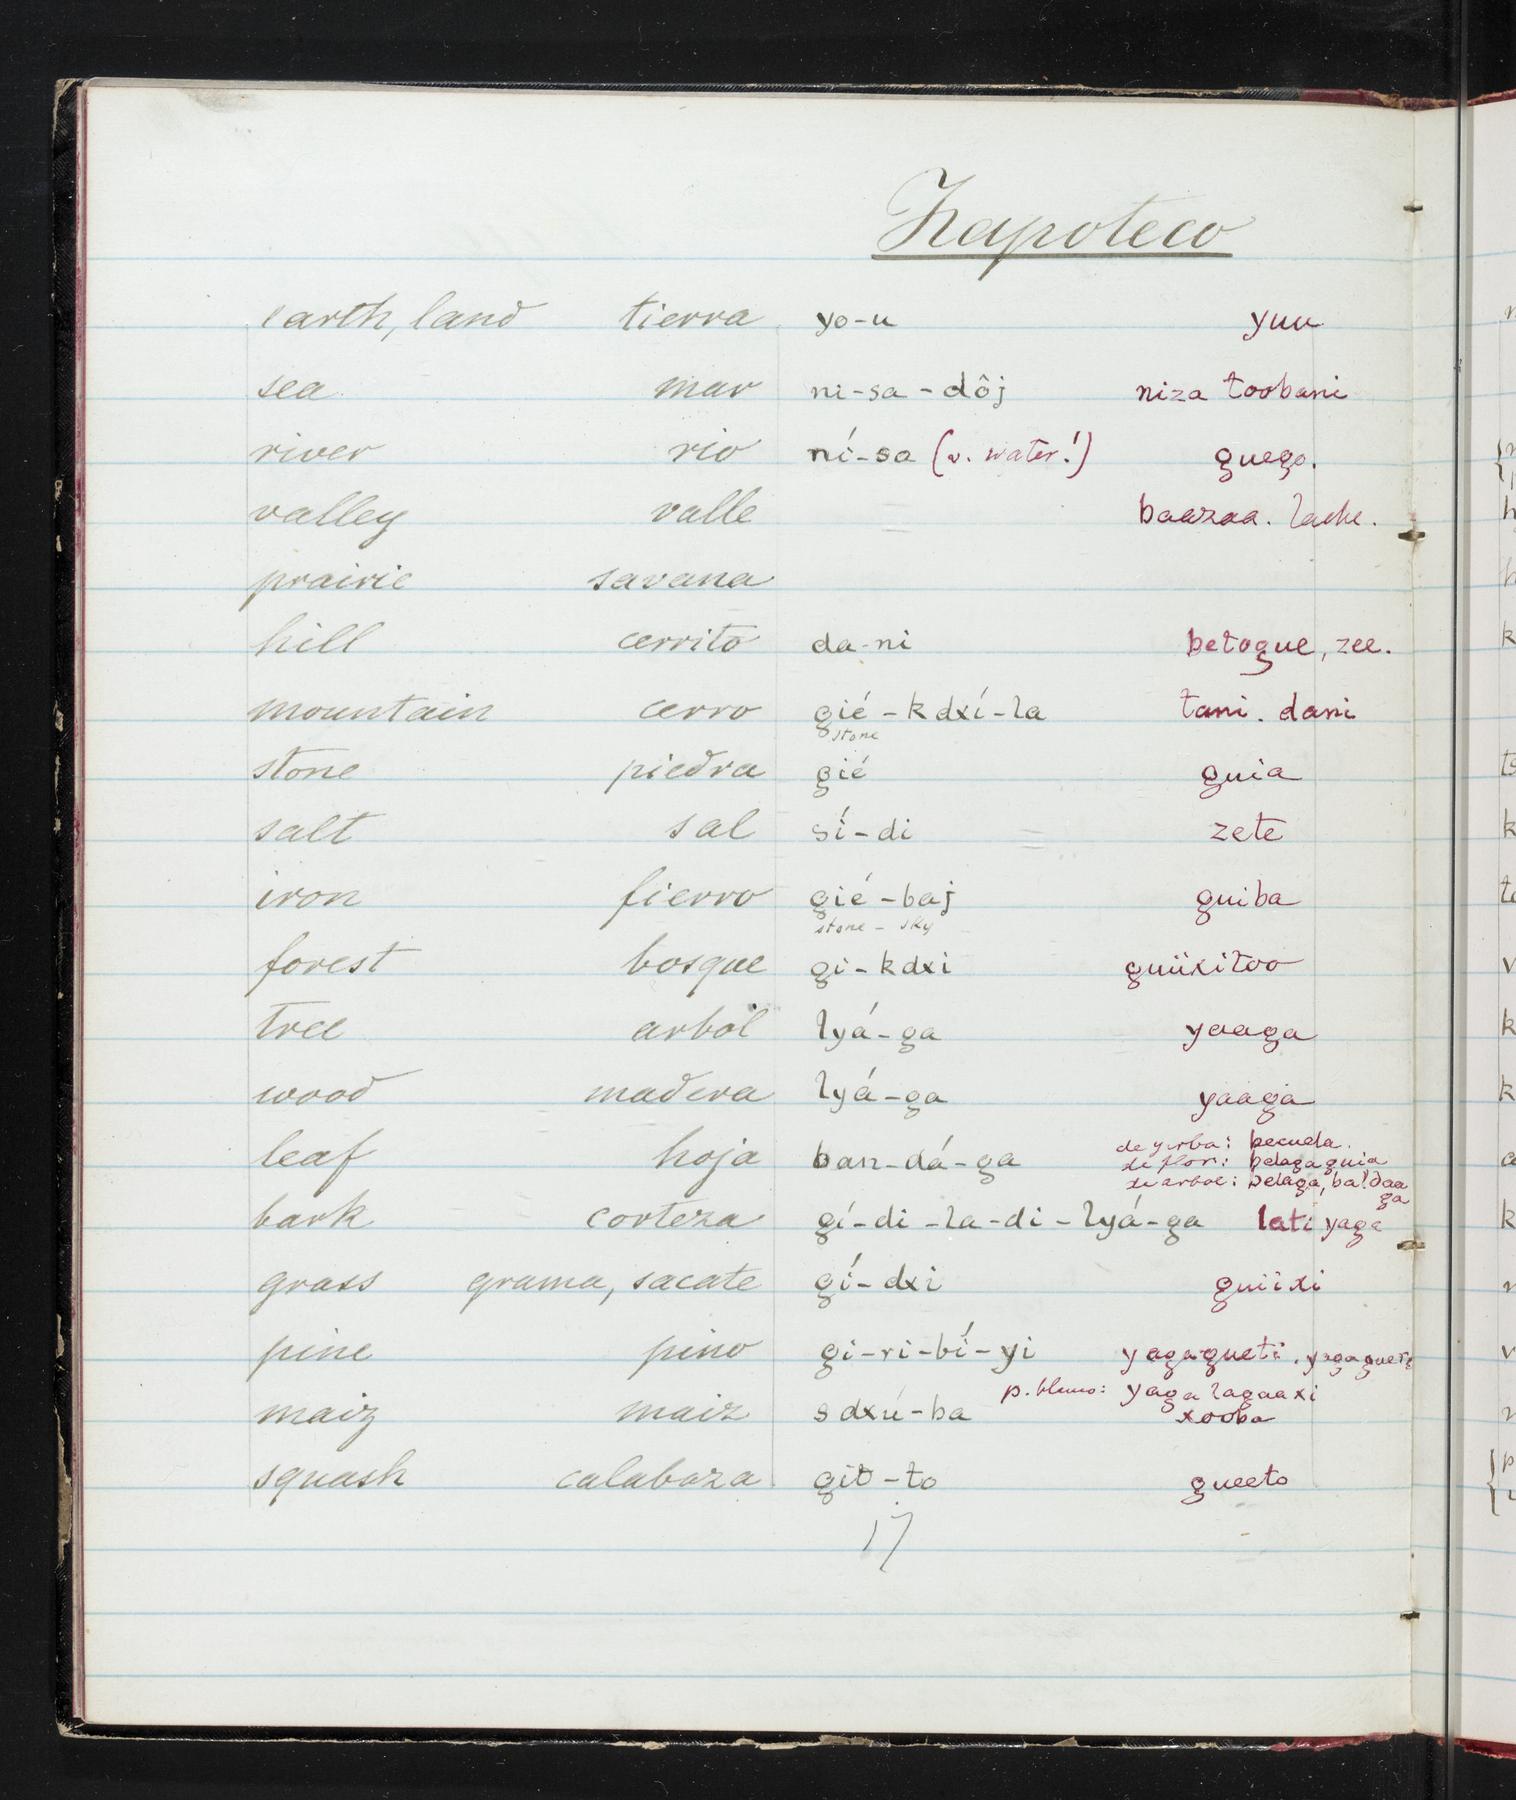 Zapoteco
earth, land tierra yo-u yuu
sea mar ni-sa-dôj niza toobani
river rio ní-sa (v. water!) guego.
valley valle baazaa. lache.
prairie savana
hill cerrito da-ni betogue, zee.
mountain cerro gié-kdxí-la tani. dani
stone
stone piedra gié guia
salt sal sí-di zete
iron fierro gié-baj guiba
stone - sky
forest bosque gi-kdxi guiixitoo
tree arbol lyá-ga yaaga
wood madera lyá-ga yaaga
de yerba: becuela.
leaf hoja ban-dá-ga de flor: belagaguia
de arbol: belaga, baldaa
ga
bark corteza gí-di-la-di-lyá-ga lati yaga
grass grama, sacate gí-dxi guiixi
pine pino gi-ri-bí-yi yagagueti.
p. blanco: yaga lagaaxi
maiz maiz sdxú-ba xooba
squash calabaza git-to gueeto
17